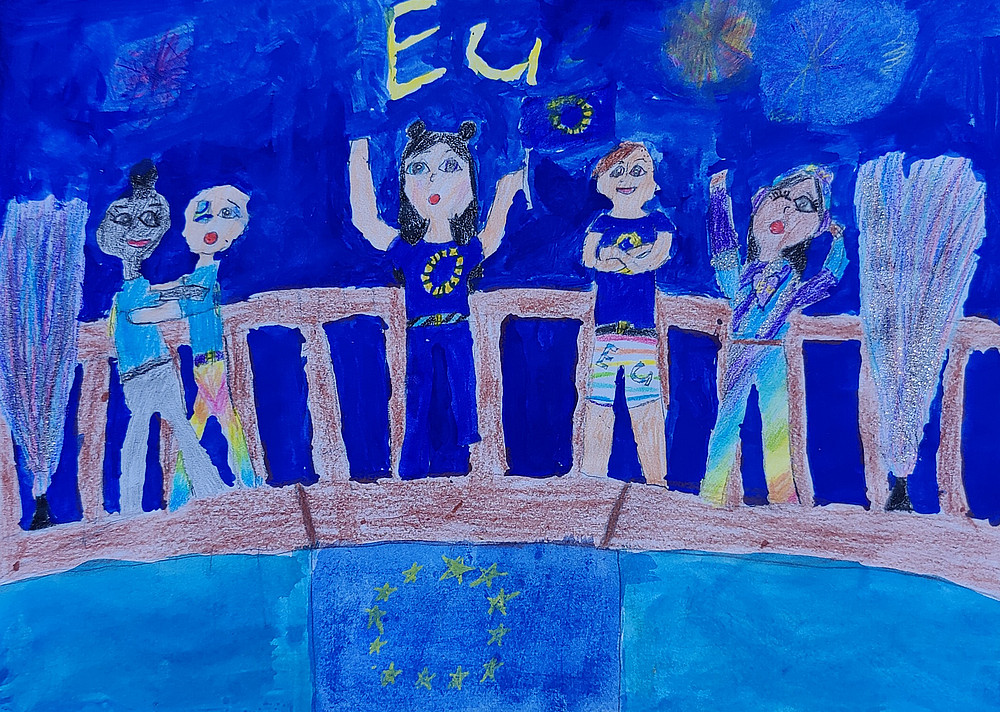 EU
EU